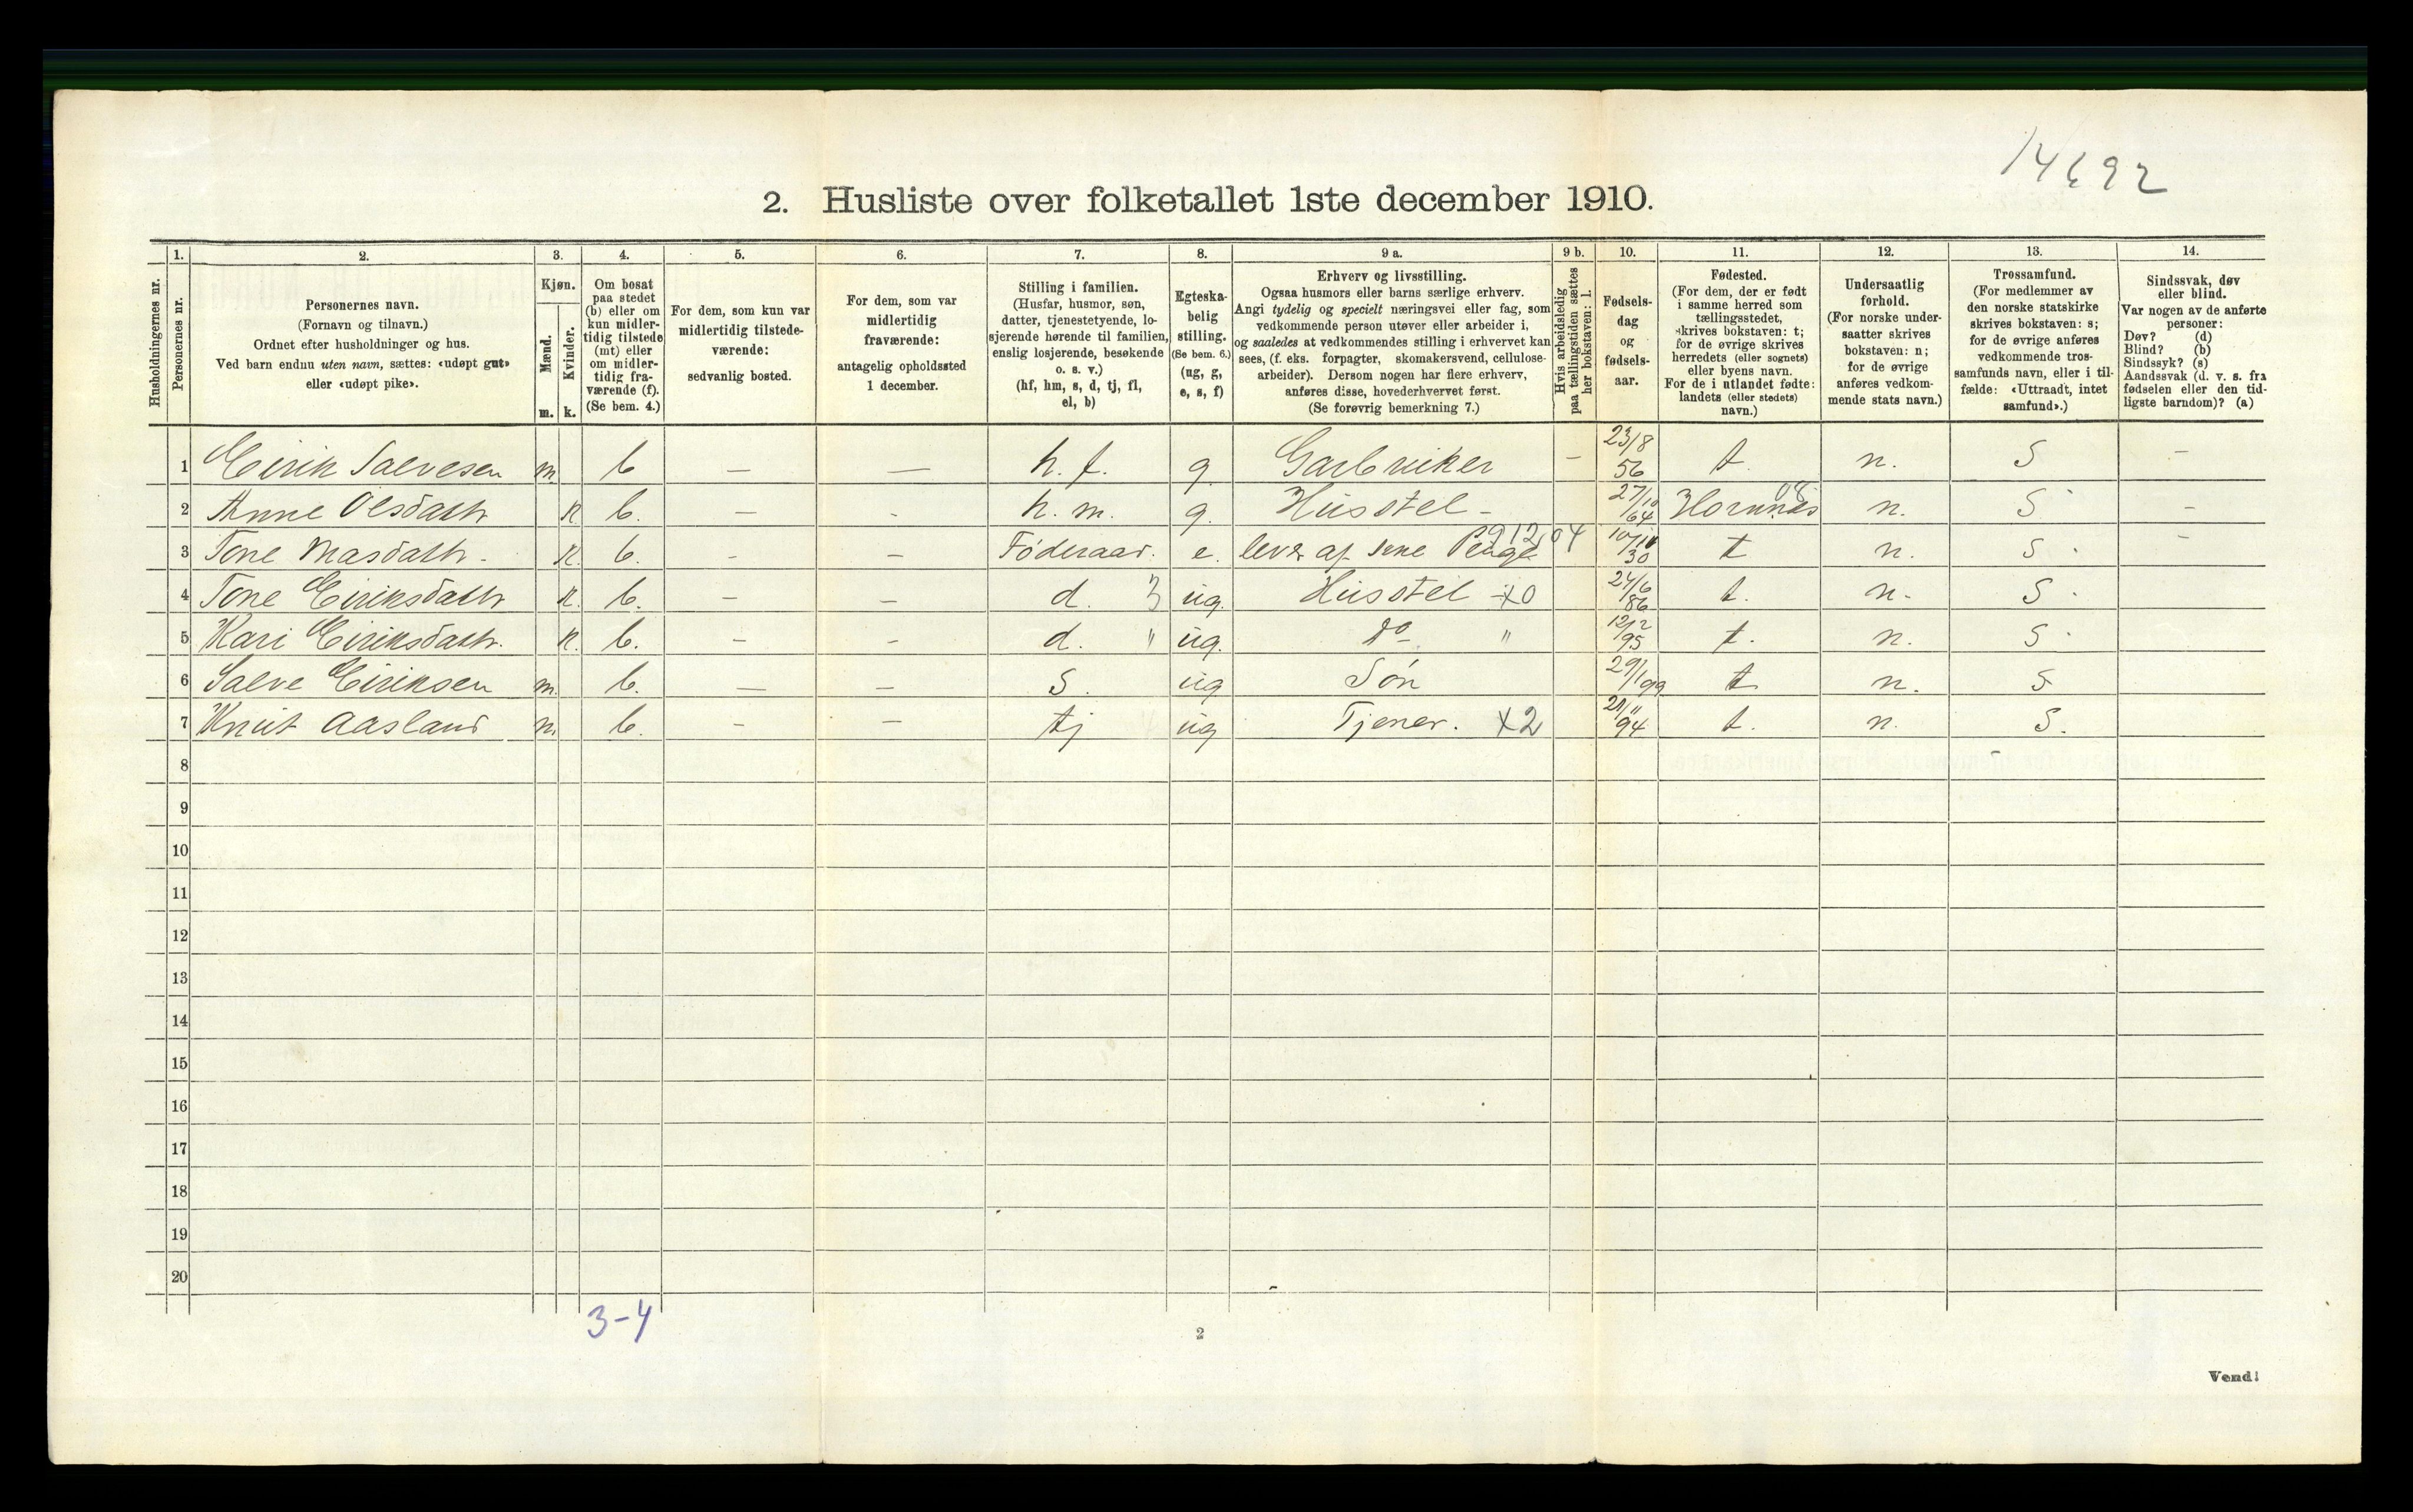 14692
2. Husliste over folketallet 1ste december 1910.
Husholdningernes nr.
1.
Personernes nr.
2.
Personernes navn.
(Fornavn og tilnavn.)
Ordnet efter husholdninger og hus.
Ved barn endnu uten navn, sættes: «udøpt gut»
eller «udøpt pike».
3.
Kjøn.
Mænd.
Kvinder.
m. k.
4.
Om bosat
paa stedet
(b) eller om
kun midler-
tidig tilstede
(mt) eller
om midler-
tidig fra-
værende (f).
(Se bem. 4.)
5.
For dem, som kun var
midlertidig tilstede-
værende:
sedvanlig bosted.
6.
For dem, som var
midlertidig
fraværende:
antagelig opholdssted
1 december.
7.
Stilling i familien.
(Husfar, husmor, søn,
datter, tjenestetyende, lo-
sjerende hørende til familien,
enslig losjerende, besøkende
o. s. v.)
(hf, hm, s, d, tj, fl,
el, b)
8.
Egteska-
belig
stilling.
(Se bem. 6.)
(ug, g,
e, s, f)
9 a.
Erhverv og livsstilling.
Ogsaa husmors eller barns særlige erhverv.
Angi tydelig og specielt næringsvei eller fag, som
vedkommende person utøver eller arbeider i,
og saaledes at vedkommendes stilling i erhvervet kan
sees, (f. eks. forpagter, skomakersvend, cellulose-
arbeider). Dersom nogen har flere erhverv,
anføres disse, hovederhvervet først.
(Se forøvrig bemerkning 7.)
9 b.
Hvis arbeidsledig
paa tællingstiden sættes
her bokstaven: l.
10.
Fødsels-
dag
og
fødsels-
aar.
11.
Fødested.
(For dem, der er født
i samme herred som
tællingsstedet,
skrives bokstaven: t;
for de øvrige skrives
herredets (eller sognets)
eller byens navn.
For de i utlandet fødte:
landets (eller stedets)
navn.)
12.
Undersaatlig
forhold.
(For norske under-
saatter skrives
bokstaven: n;
for de øvrige
anføres vedkom-
mende stats navn.)
13.
Trossamfund.
(For medlemmer av
den norske statskirke
skrives bokstaven: s;
for de øvrige anføres
vedkommende tros-
samfunds navn, eller i til-
fælde: «Uttraadt, intet
samfund».)
14.
Sindssvak, døv
eller blind.
Var nogen av de anførte
personer:
Døv? (d)
Blind? (b)
Sindssyk? (s)
Aandssvak (d. v. s. fra
fødselen eller den tid-
ligste barndom)? (a)
1 Eirik Salvesen m. b — — h. f. g. Gardbruker - 23/8 56 t. n. S -
2 Anne Olsdatr k b. — - h. m. g. Husstel - 27/10 64 Hornnes 08 n. S -
3 Tone Masdatr. k. b. - - Føderaad. e. lever af sine Penge 10/11 30 t n. S. -
4 Tone Eiriksdatr k. b. - - d. 3 ug. Husstel x0 24/6 86 t. n. S.
5 Kari Eiriksdatr. k. b. - - d. " ug. do " 12/2 95 t. n. S.
6 Salve Eiriksen m. b. — - S. ug Søn 29/1 99 t n. S
7 Knut Aasland m. b. - - tj ug Tjener. x2 94 t. n. S.
8
9
10
11
12
13
14
15
16
17
18
19
20
3-4
2
Vend!